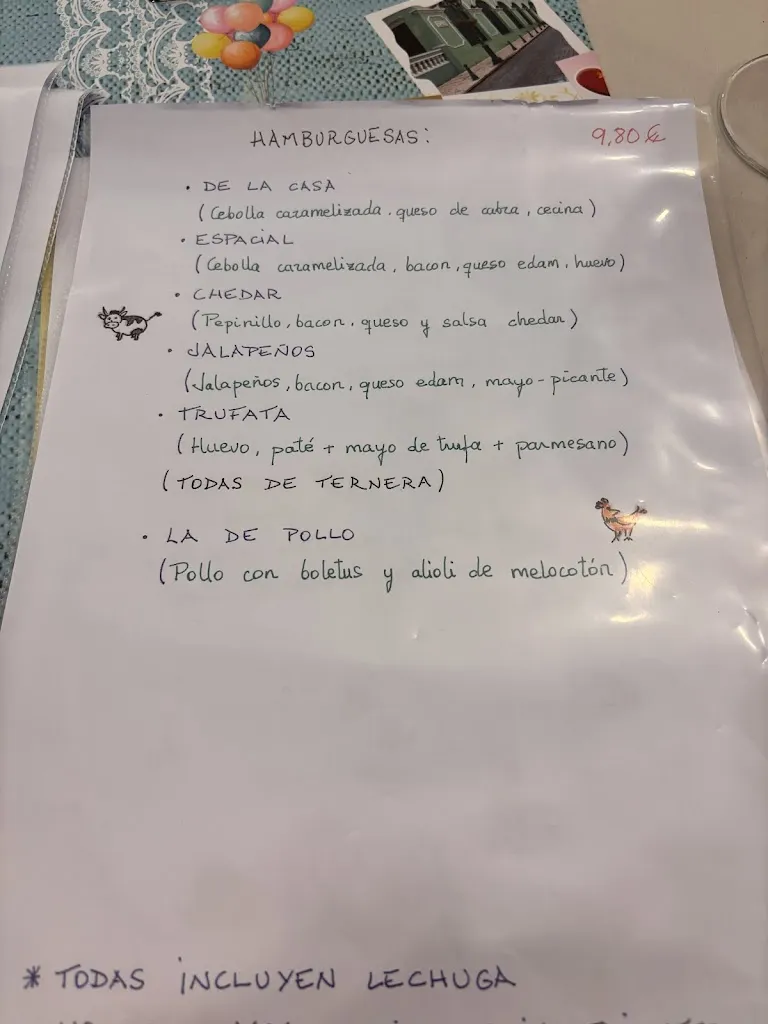 HAMBURGUESAS: 9,80 €
• DE LA CASA
(Cebolla caramelizada. queso de cabra, cecina)
• ESPACIAL
(Cebolla caramelizada, bacon, queso edam, huevo)
• CHEDAR
(Pepinillo, bacon, queso y salsa chedar)
• JALAPEÑOS
(Jalapeños, bacon, queso edam, mayo-picante)
• TRUFATA
(Huevo, paté + mayo de trufa + parmesano)
(TODAS DE TERNERA)
• LA DE POLLO
(Pollo con boletus y alioli de melocotón)
* TODAS INCLUYEN LECHUGA